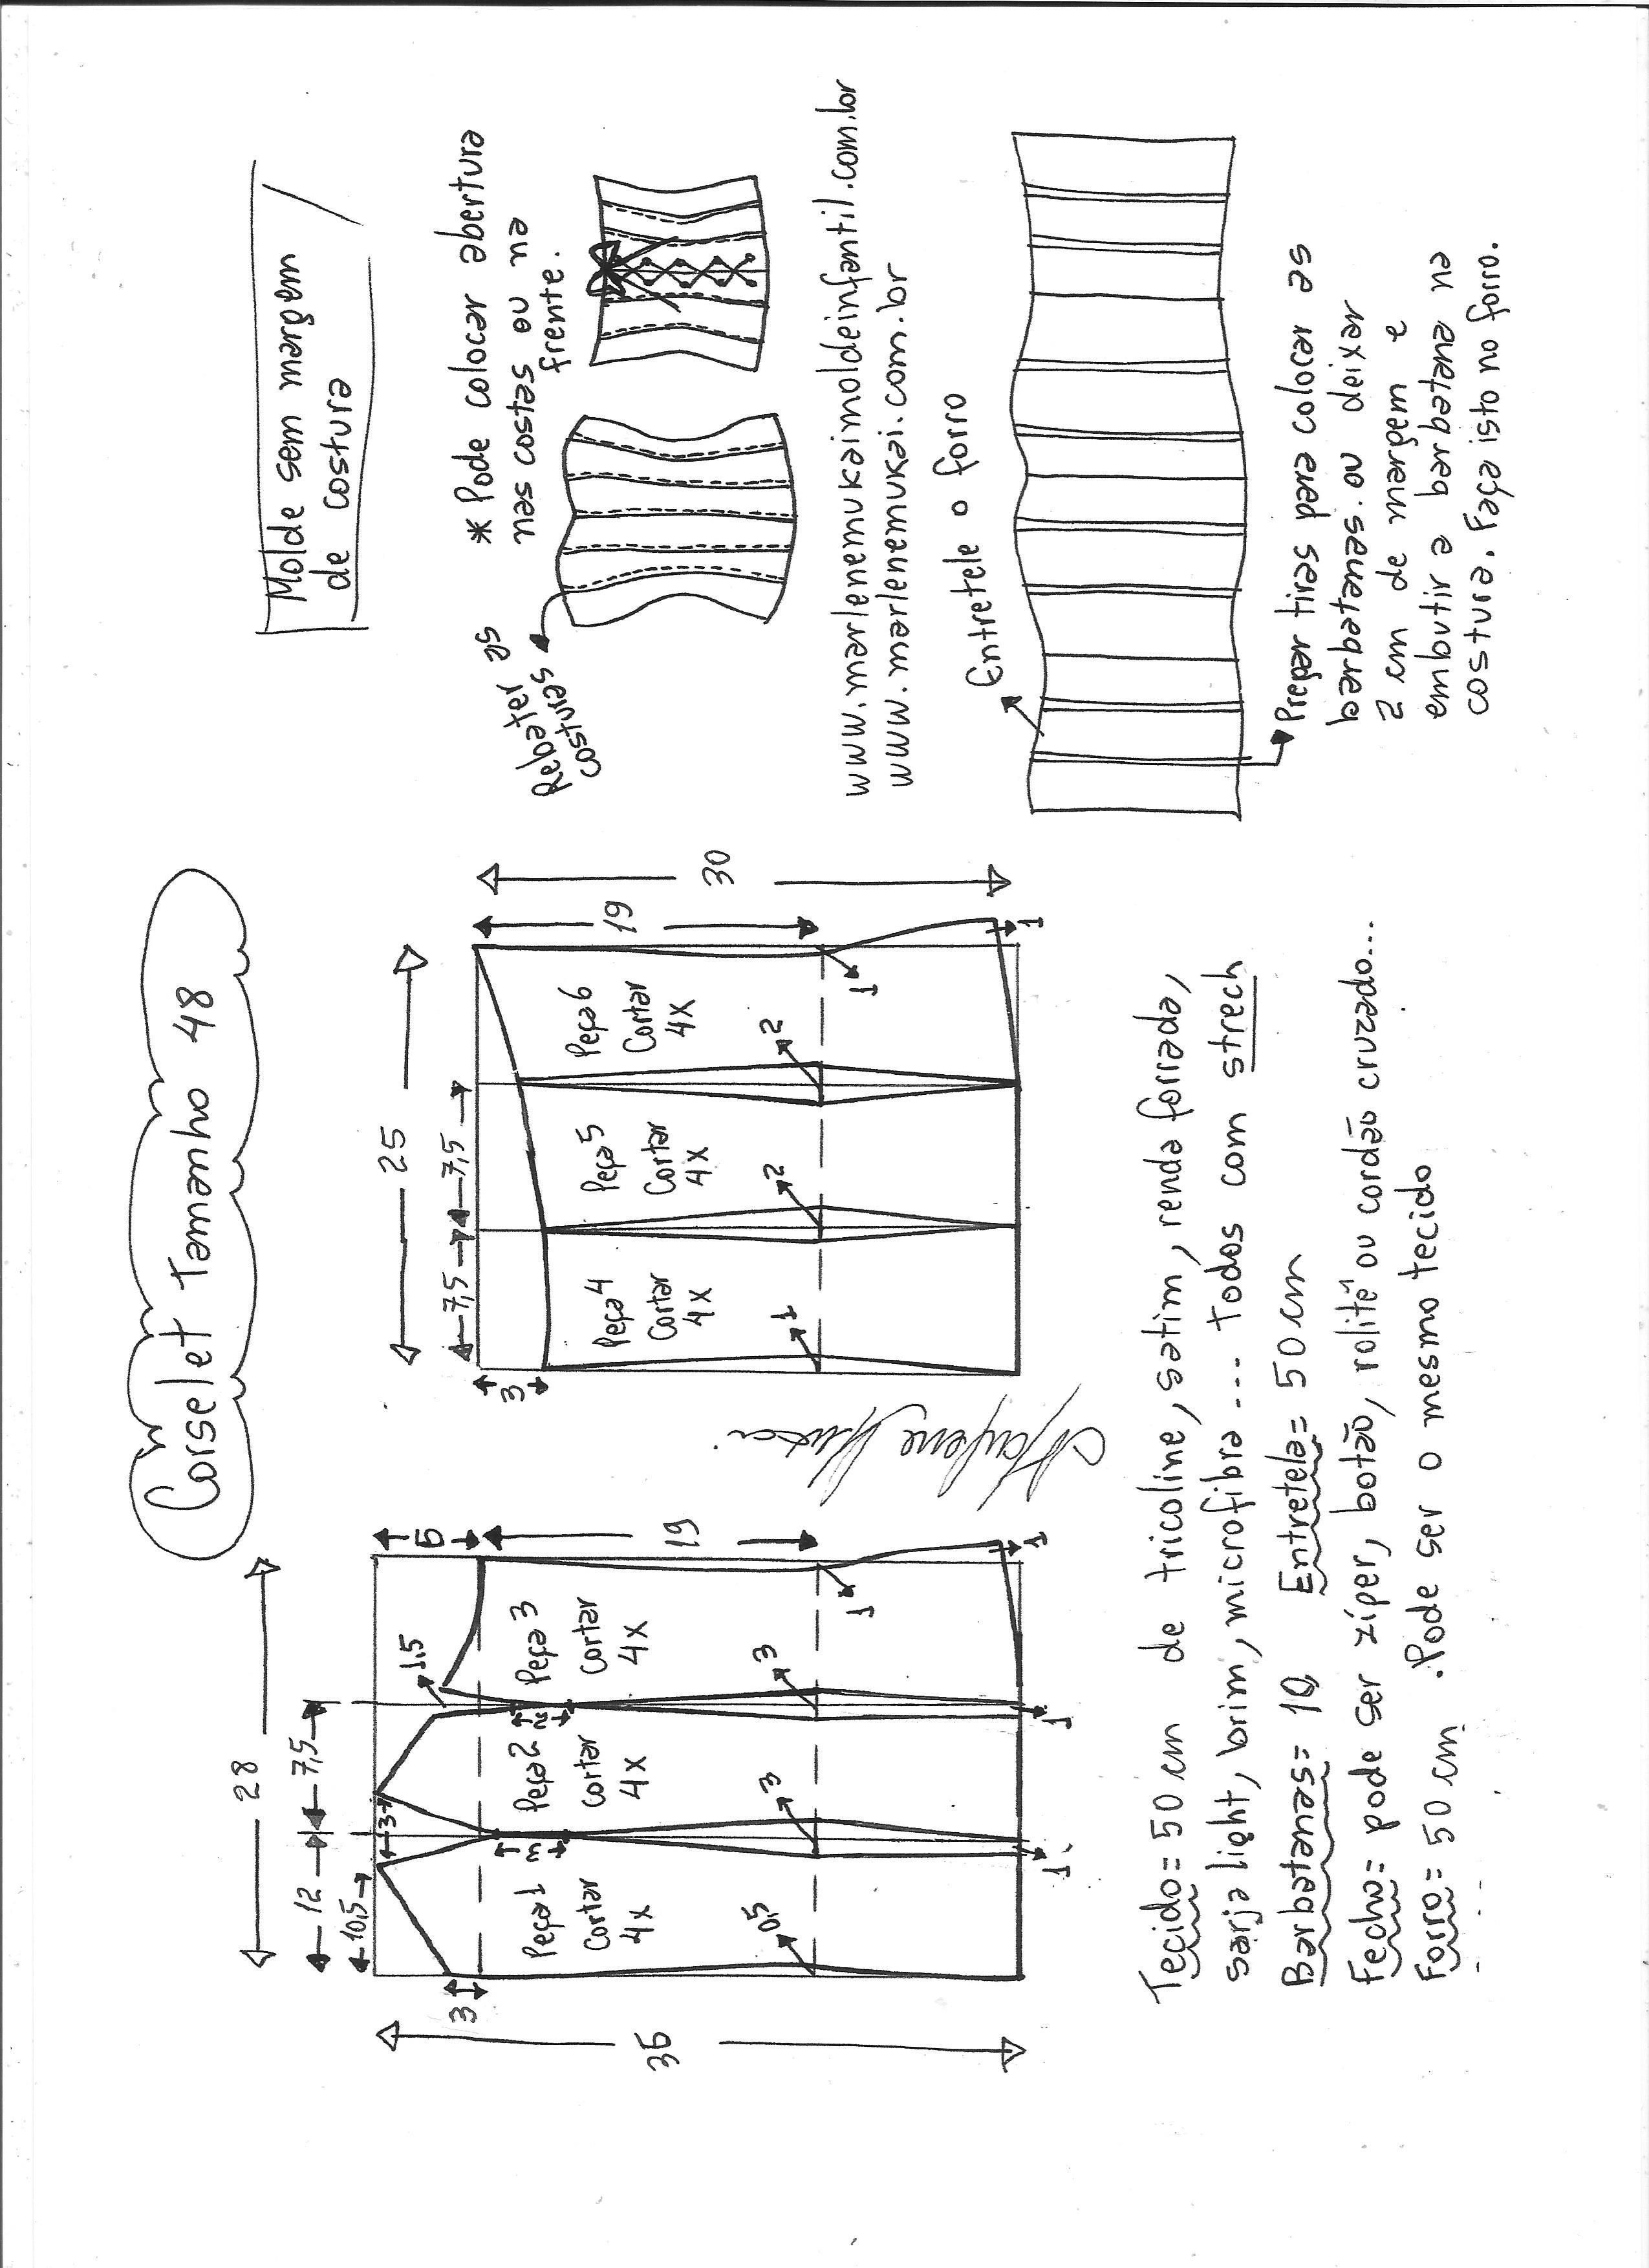 Corselet Tamanho 48
Molde sem margem
de costura
28
12
7,5
10,5
3
1,5
6
3
36
19
3
2
Peça 1
Cortar
4x
Peça 2
Cortar
4x
Peça 3
Cortar
4x
0,5
3
3
1
1
1
1
25
7,5
7,5
3
30
19
Peça 4
Cortar
4x
Peça 5
Cortar
4x
Peça 6
Cortar
4x
1
2
2
1
1
* Pode colocar abertura
nas costas ou na
frente.
Rebater as
costuras
www.marlenemukaimoldeinfantil.com.br
www.marlenemukai.com.br
Entretele o forro
Pregar tiras para colocar as
barbatanas. ou deixar
2 cm de margem e
embutir a barbatana na
costura. Faça isto no forro.
Tecido = 50 cm de tricoline, satim, renda forrada,
sarja light, brim, microfibra ... Todos com strech
Barbatanas = 10 Entretela = 50 cm
Fecho = pode ser zíper, botão, rolitê ou cordão cruzado...
Forro = 50 cm .Pode ser o mesmo tecido